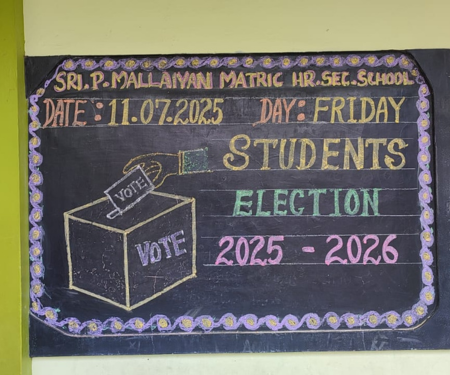 SRI.P.MALLAIYAN MATRIC HR.SEC.SCHOOL
DATE: 11.07.2025 DAY: FRIDAY
STUDENTS
VOTE
ELECTION
VOTE
2025 - 2026